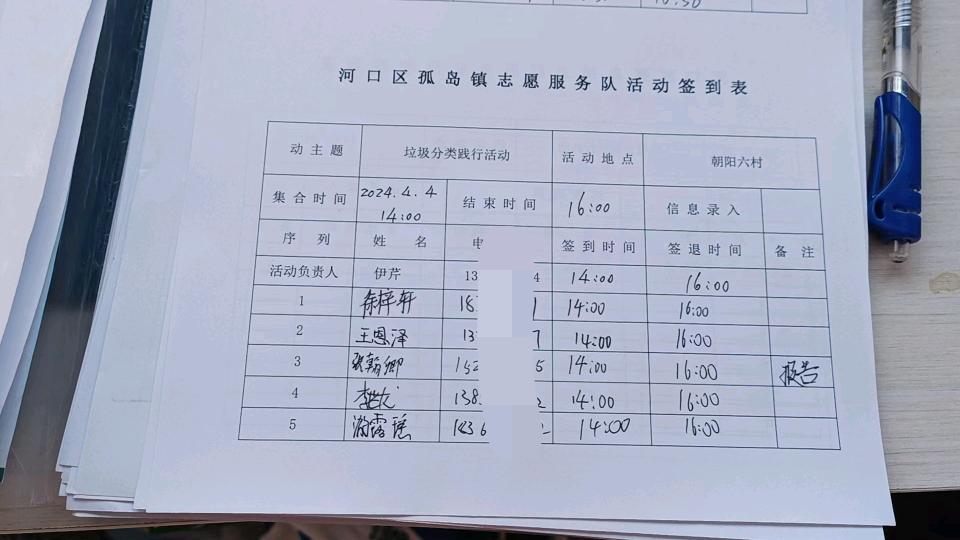 河口区孤岛镇志愿服务队活动签到表
动主题 垃圾分类践行活动 活动地点 朝阳六村
集合时间 2024.4.4 14:00 结束时间 16:00 信息录入
序列 姓名 电 签到时间 签退时间 备注
活动负责人 伊芹 13 4 14:00 16:00
1 徐梓轩 18 1 14:00 16:00
2 王恩泽 13 7 14:00 16:00
3 张翰卿 152 5 14:00 16:00 报告
4 李 138 2 14:00 16:00
5 露瑶 14:00 16:00